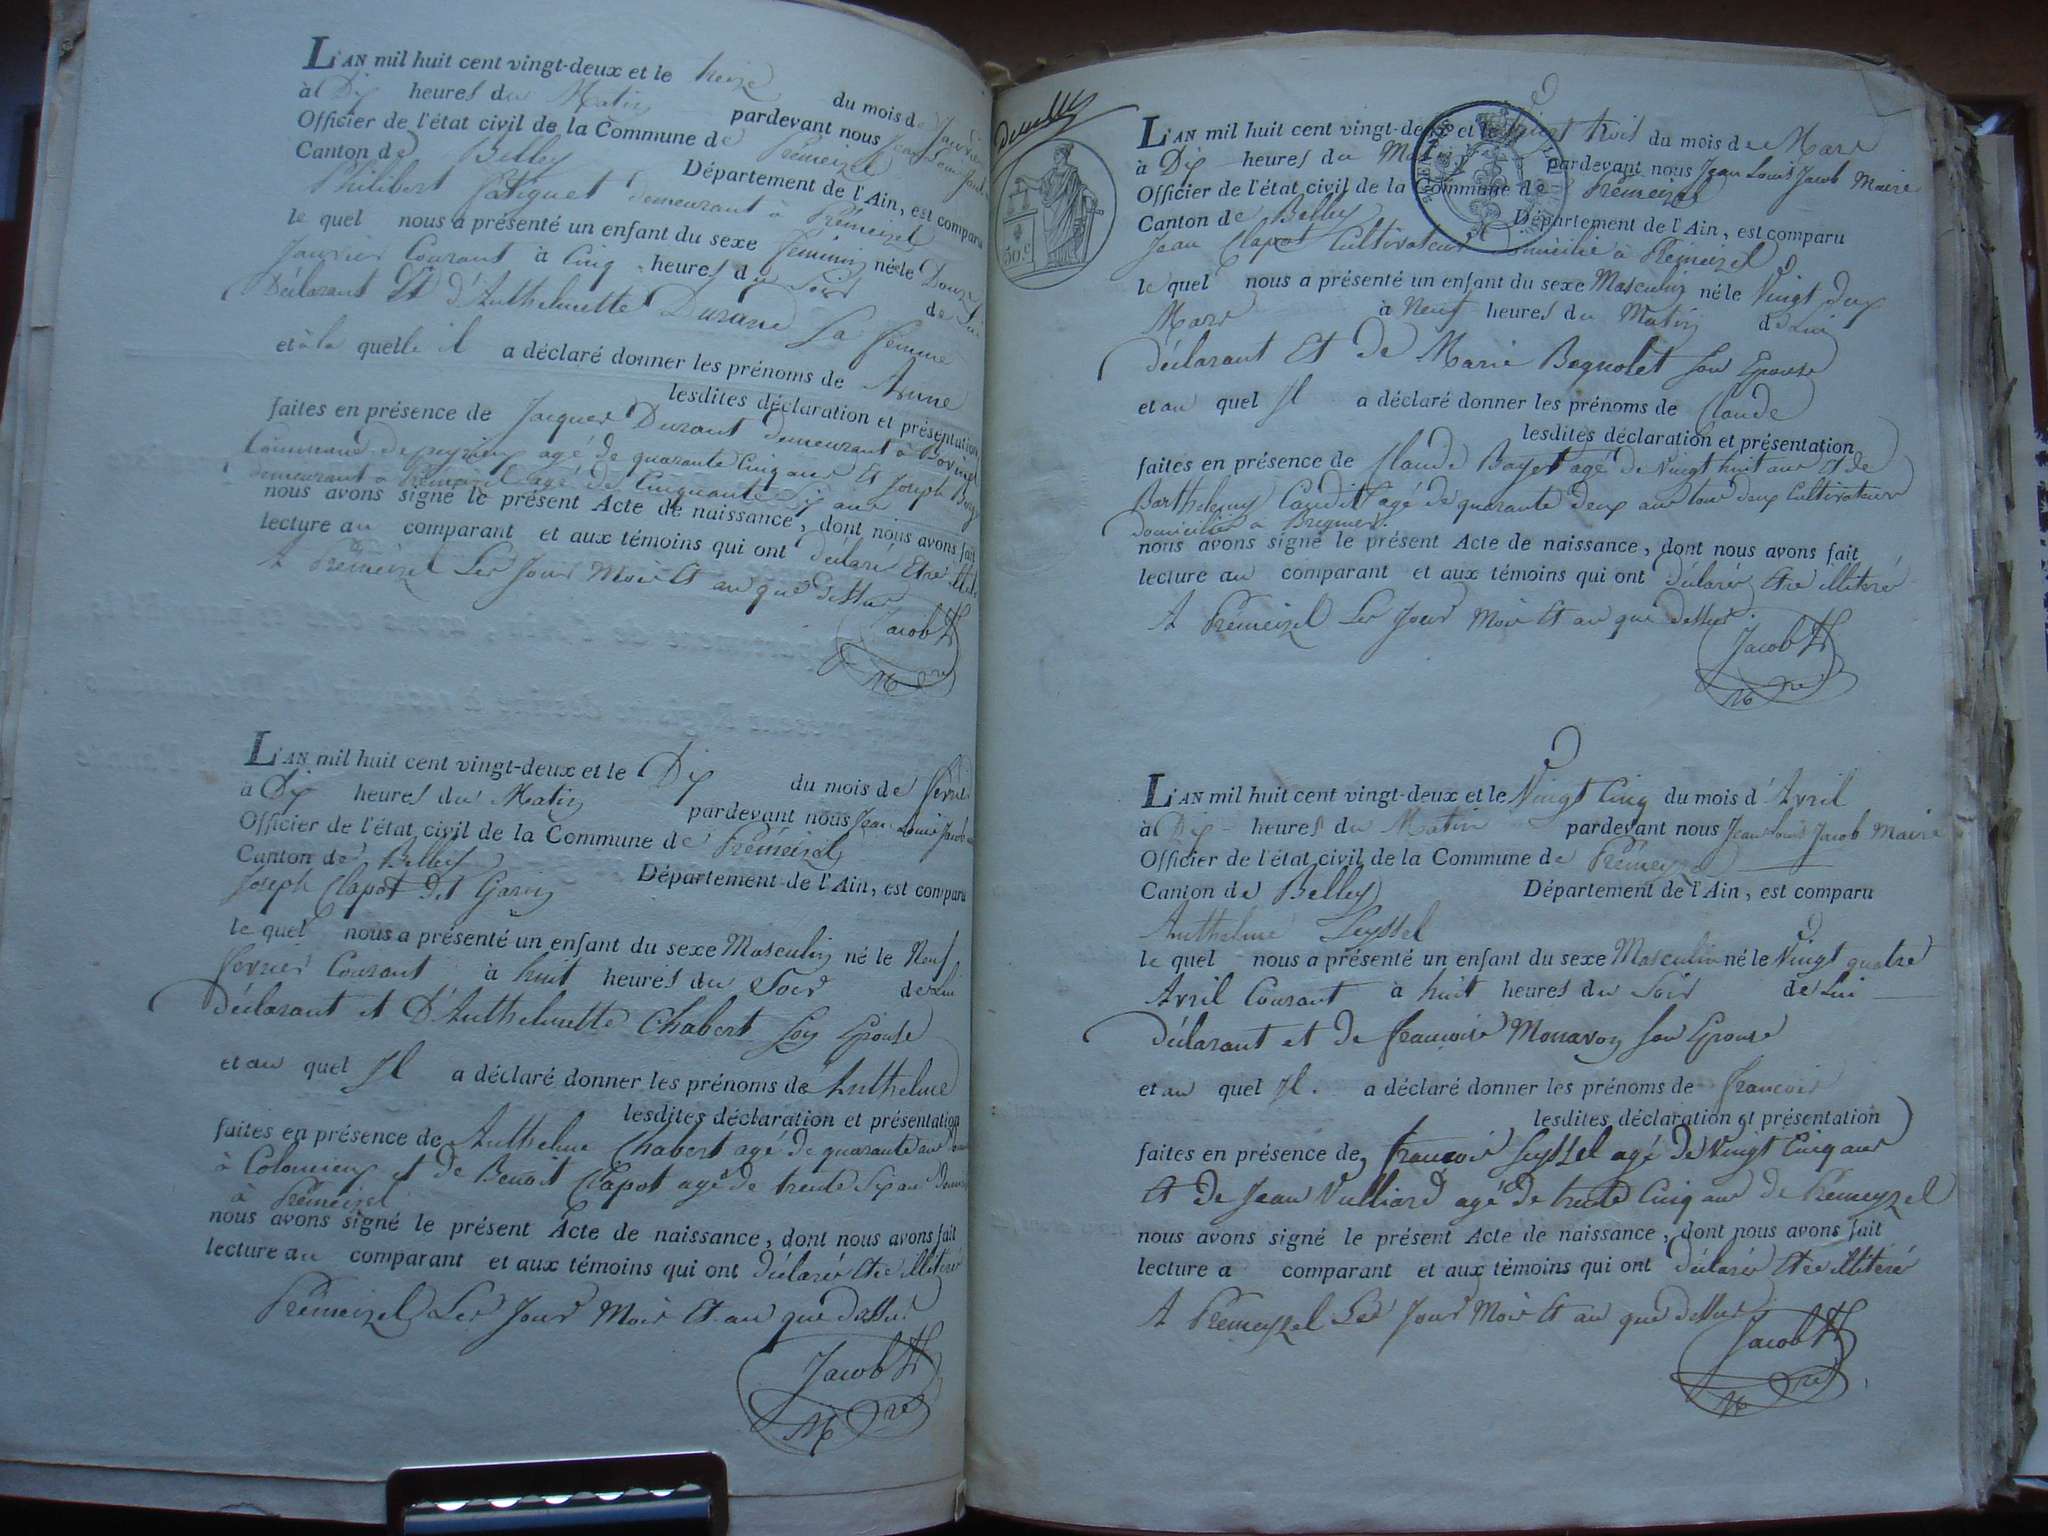 L'AN mil huit cent vingt-deux et le treize du mois de Janvier
à Dix heures du Matin pardevant nous Jean Louis
Officier de l'état civil de la Commune de Prémeizel
Canton de Belley Département de l'Ain, est comparu
Philibert demeurant à Prémeizel
le quel nous a présenté un enfant du sexe féminin née le Douze
Janvier Courant à Cinq heures du Soir de Lui
Déclarant Et d'Anthelmette Durand Sa femme
et à la quelle il a déclaré donner les prénoms de Anne
lesdites déclaration et présentation
faites en présence de Jacques Durant demeurant à
Commune de peyrieu agé de quarante Cinq ans Et Joseph
demeurant à Prémeizel agé de Cinquante Six ans
nous avons signé le présent Acte de naissance, dont nous avons fait
lecture au comparant et aux témoins qui ont déclaré Etre
A Prémeizel Les Jour Mois Et an que dessus
Jacob
M re
L'AN mil huit cent vingt-deux et le Dix du mois de fevrier
à Dix heures du Matin pardevant nous Jean Louis Jacob
Officier de l'état civil de la Commune de Prémeizel
Canton de Belley Département de l'Ain, est comparu
Joseph Clapot dit
le quel nous a présenté un enfant du sexe Masculin né le Neuf
fevrier Courant à huit heures du Soir de Lui
déclarant et D'Anthelmette Chabert Son Epouse
et au quel Il a déclaré donner les prénoms de Anthelme
lesdites déclaration et présentation
faites en présence de Anthelme Chabert agé de quarante ans
à Colomieu et de Benoit Clapot agé de trente Six ans
à Prémeizel
nous avons signé le présent Acte de naissance, dont nous avons fait
lecture au comparant et aux témoins qui ont déclaré Etre illiteré
Prémeizel Les Jour Mois Et an que dessus
Jacob
M re
50 c
L'AN mil huit cent vingt-deux et le vingt trois du mois de Mars
à Dix heures du Matin pardevant nous Jean Louis Jacob Maire
Officier de l'état civil de la Commune de Prémeizel
Canton de Belley Département de l'Ain, est comparu
Jean Clapot Cultivateur Domicilié à Prémeizel
le quel nous a présenté un enfant du sexe Masculin né le Vingt deux
Mars à Neuf heures du Matin de Lui
déclarant Et de Marie Bognolet Son Epouse
et au quel Il a déclaré donner les prénoms de Claude
lesdites déclaration et présentation
faites en présence de Claude Boyet agé de Vingt huit ans Et de
Barthelemy agé de quarante deux ans tous deux Cultivateurs
domiciliés à
nous avons signé le présent Acte de naissance, dont nous avons fait
lecture au comparant et aux témoins qui ont déclaré Etre illiteré
A Prémeizel Les Jour Mois Et an que dessus
Jacob
M re
L'AN mil huit cent vingt-deux et le Vingt Cinq du mois d'Avril
à Dix heures du Matin pardevant nous Jean Louis Jacob Maire
Officier de l'état civil de la Commune de Prémeyzel
Canton de Belley Département de l'Ain, est comparu
Anthelme Seyssel
le quel nous a présenté un enfant du sexe Masculin né le Vingt quatre
Avril Courant à huit heures du Soir de Lui
Déclarant et de francoise Monavon Son Epouse
et au quel Il a déclaré donner les prénoms de francois
lesdites déclaration et présentation
faites en présence de francois Seyssel agé de Vingt Cinq ans
Et de Jean Vulliard agé de trente Cinq ans de Prémeyzel
nous avons signé le présent Acte de naissance, dont nous avons fait
lecture a comparant et aux témoins qui ont déclaré Etre illiteré
A Prémeyzel Les Jour Mois Et an que dessus
Jacob
M re